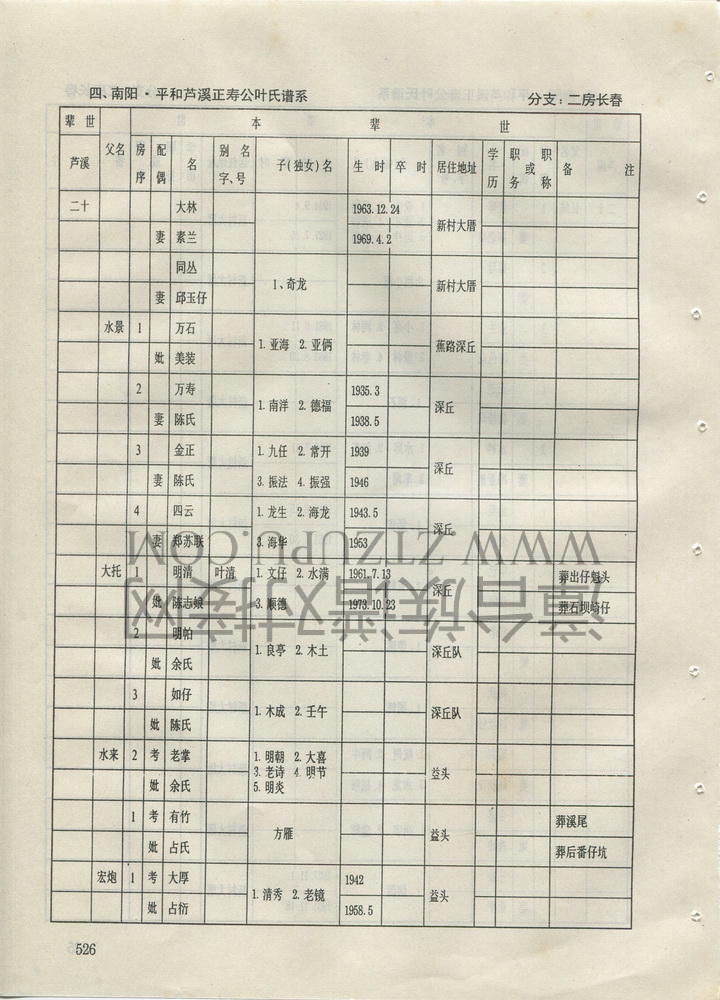 四、南阳·平和芦溪正寿公叶氏谱系 分支：二房长春
辈世 父名 本辈世
芦溪 房序 配偶 名 别名字、号 子(独女)名 生时 卒时 居住地址 学历 职务或职称 备注
二十 大林 1963.12.24 新村大厝
妻 素兰 1969.4.2
同丛 1、奇龙 新村大厝
妻 邱玉仔
水景 1 万石 1.亚海 2.亚俩 蕉路深丘
妣 美装
2 万寿 1.南洋 2.德福 1935.3 深丘
妻 陈氏 1938.5
3 金正 1.九任 2.常开 1939 深丘
妻 陈氏 3.振法 4.振强 1946
4 四云 1.龙生 2.海龙 1943.5 深丘
妻 郑苏联 3.海华 1953
大托 1 明清 叶清 1.文仔 2.水满 1961.7.13 深丘 葬出仔魁头
妣 陈志娘 3.顺德 1973.10.23 葬石坝崎仔
2 明帕 1.良亭 2.木土 深丘队
妣 余氏
3 如仔 1.木成 2.壬午 深丘队
妣 陈氏
水来 2 考 老掌 1.明朝 2.大喜 益头
3.老诗 4.明节
妣 余氏 5.明炎
1 考 有竹 方雁 益头 葬溪尾
妣 占氏 葬后番仔坑
宏炮 1 考 大厚 1.清秀 2.老镜 1942 益头
妣 占衍 1958.5
526
WWW.ZTZUPU.COM
漳台族谱对接网